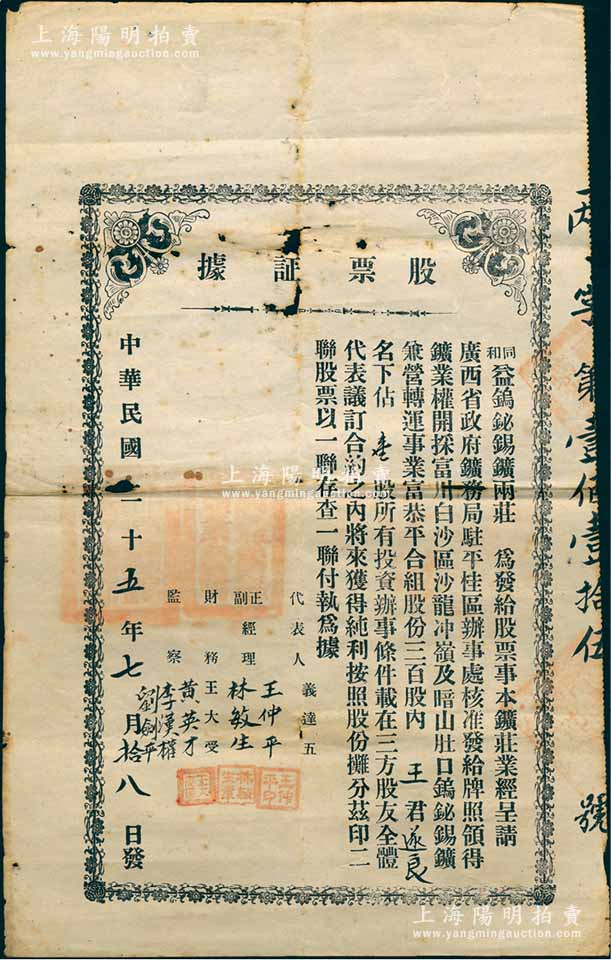 上海陽明拍賣
www.yangmingauction.com
股票証據
同和益鎢鉍錫鑛兩莊 為發給股票事本鑛莊業經呈請
廣西省政府鑛務局駐平桂區辦事處核准發給牌照領得
鑛業權開採富川白沙區沙龍冲嶺及暗山肚口鎢鉍錫鑛
兼營轉運事業富恭平合組股份三百股內 王君遂良
名下佔壱股所有投資辦事條件載在三方股友全體
代表議訂合約內將來獲得純利按照股份攤分茲印二
聯股票以一聯存查一聯付執為據
代表人 義達五
正經理 王仲平
副經理 林敏生
財務 王大受
監察 黃英才
李漢權
劉劍平
中華民國二十五年七月拾八日發
第壹佰壹拾伍號
上海陽明拍賣
www.yangmingauction.com
上海陽明拍賣
www.yangmingauction.com